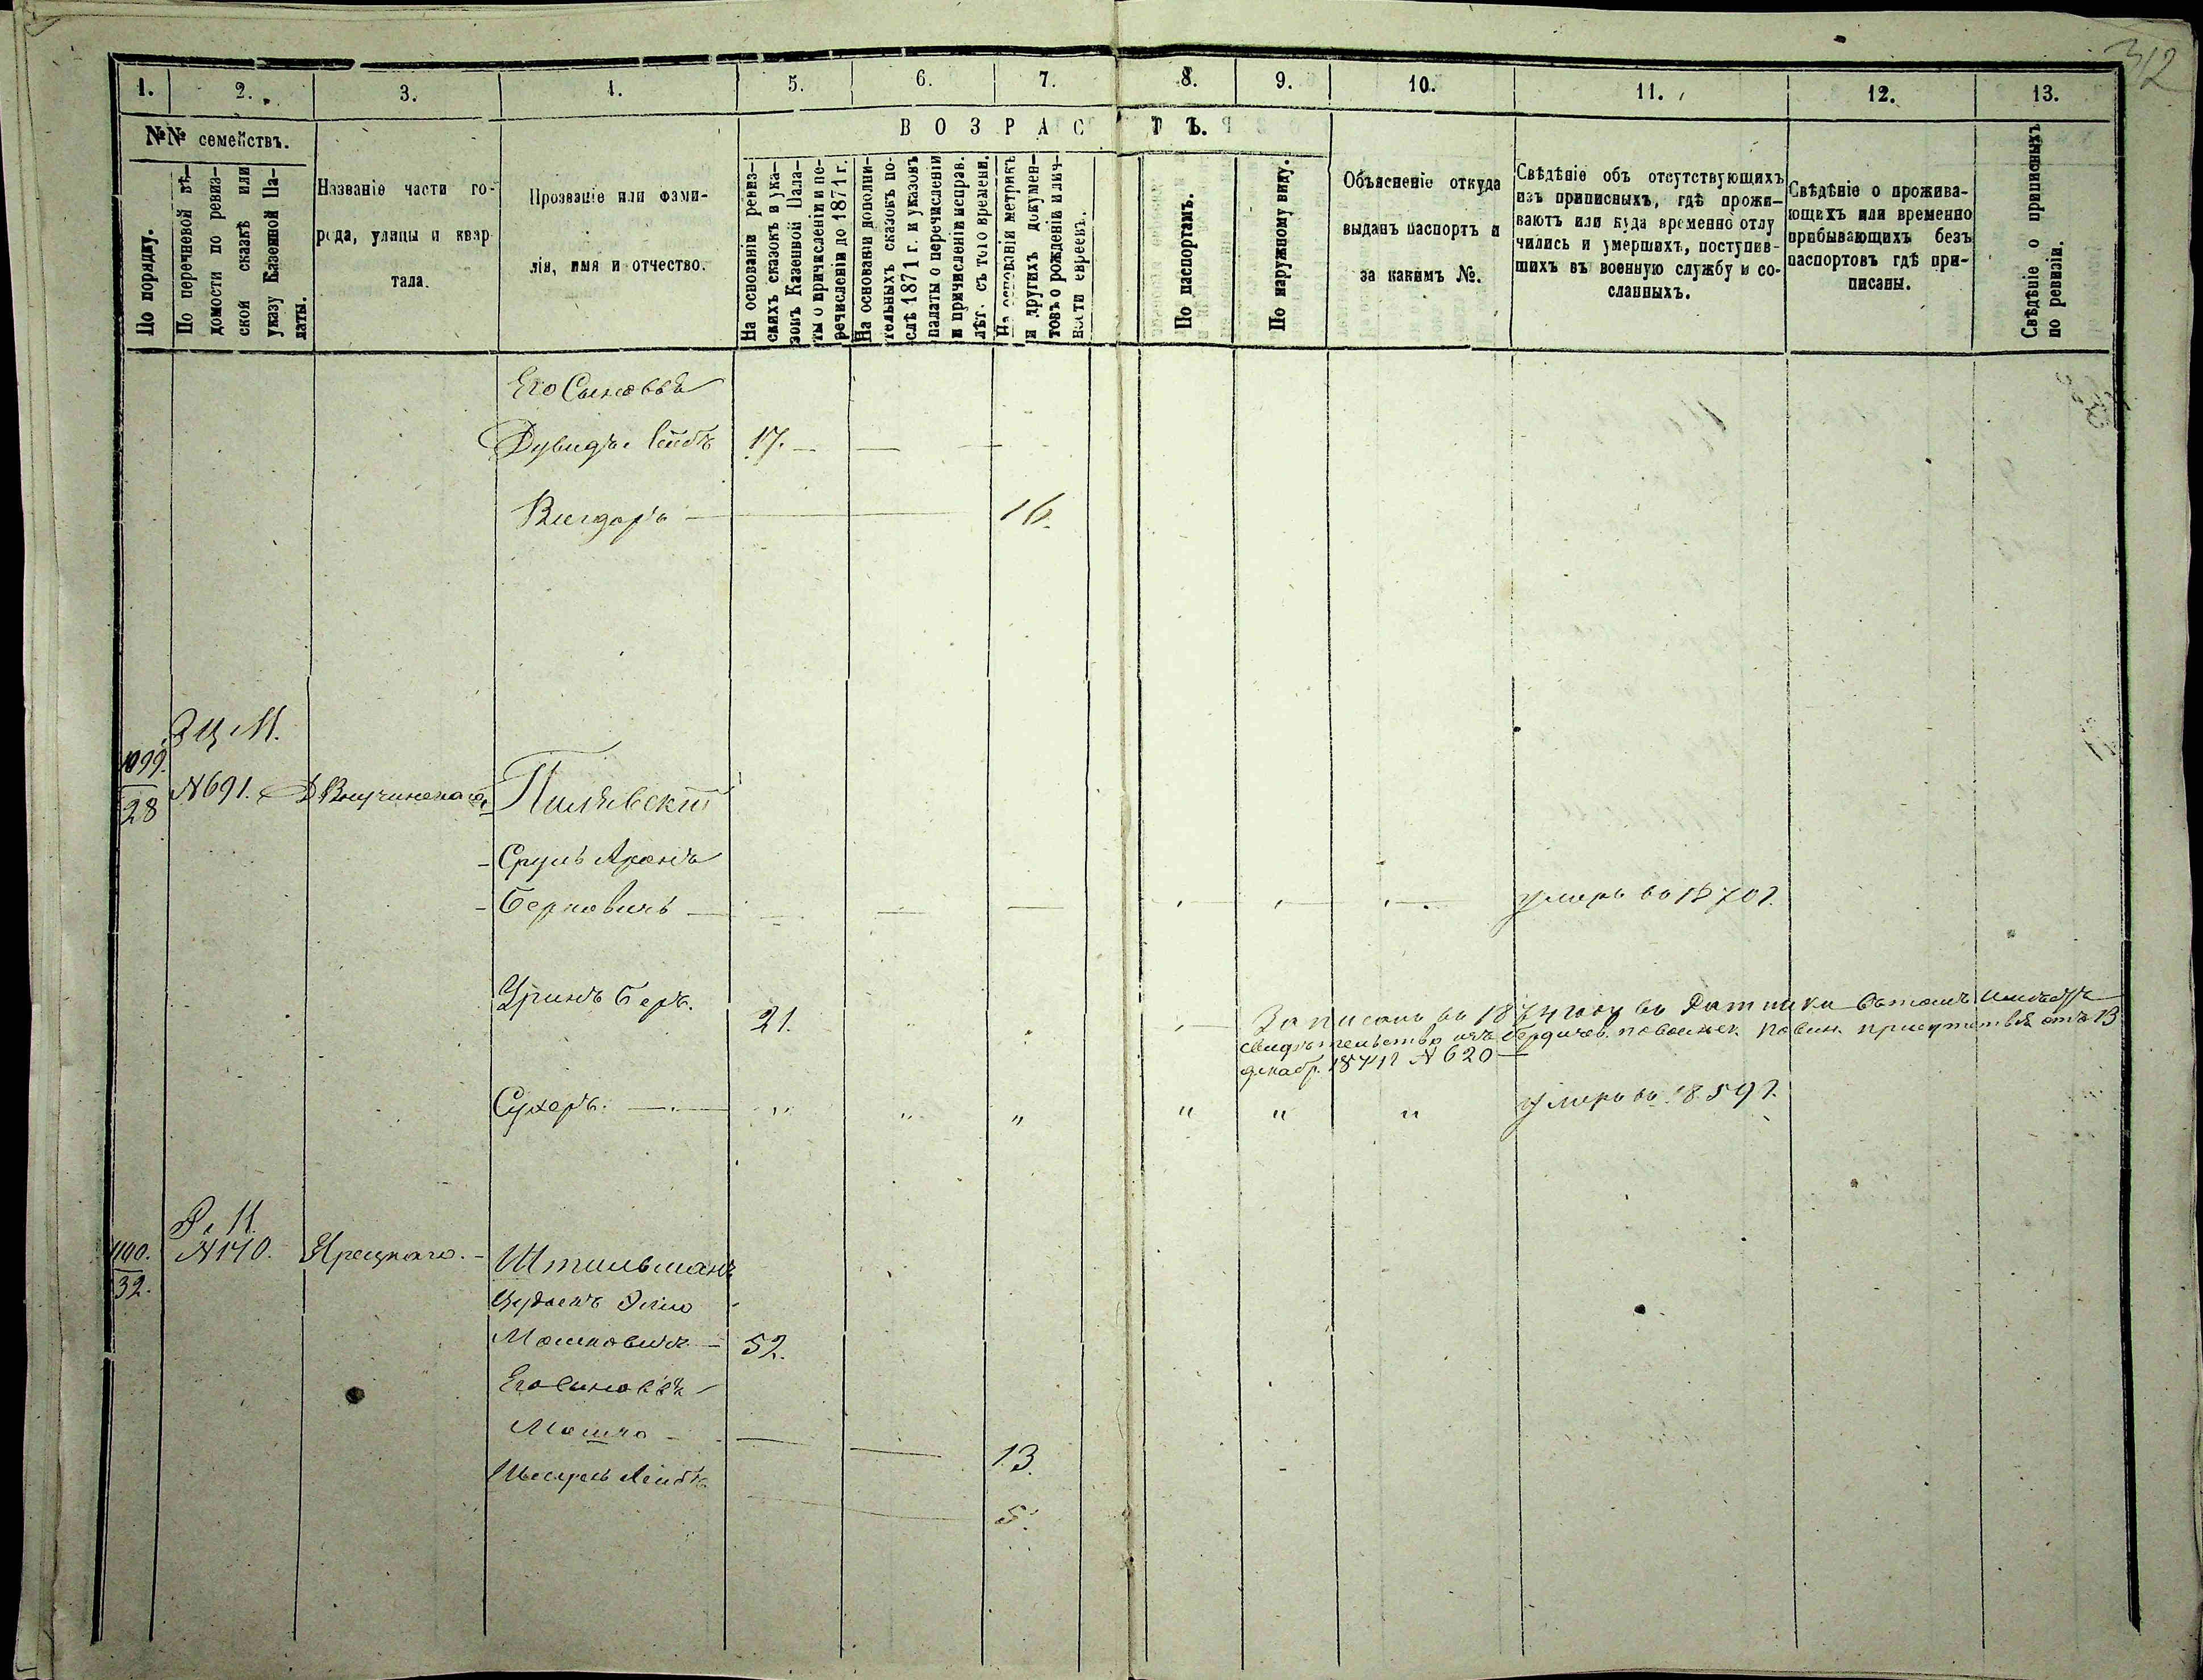 312
1. 2. 3. 4. 5. 6. 7. 8. 9. 10. 11. 12. 13.
№№ семействъ.
ВОЗРАСТЪ.
По порядку.
По перечневой вѣ-
домости по ревиз-
ской сказкѣ или
указу Казенной Па-
латы.
Названіе части го-
рода, улицы и квар
тала.
Прозваніе или фами-
лія, имя и отчество.
На основаніи ревиз-
скихъ сказокъ и ука-
зовъ Казенной Пала-
ты о причисленіи и пе-
речисленіи до 1871 г.
На основаніи дополни-
тельныхъ сказокъ по-
слѣ 1871 г. и указовъ
палаты о перечисленіи
и причисленіи исправ.
лѣт. съ того времени.
На основаніи метрикъ
и другихъ докумен-
товъ о рожденіи и лич-
ности евреевъ.
По паспортамъ.
По наружному виду.
Объясненіе откуда
выданъ паспортъ и
за какимъ №.
Свѣдѣніе объ отсутствующихъ
изъ приписныхъ, гдѣ прожи-
ваютъ или куда временно отлу
чились и умершихъ, поступив-
шихъ въ военную службу и со-
сланныхъ.
Свѣдѣніе о прожива-
ющихъ или временно
прибывающихъ безъ
паспортовъ гдѣ при-
писаны.
Свѣдѣніе о приписныхъ
по ревизіи.
Его Сыновья
Дувидъ Лейбъ 17. —
Вигдоръ — 16.
1099.
28
№691.
Пилявскій
Сруль Аронъ
Берковичъ — умеръ въ 1870 г.
Уринъ Беръ. 21. Записанъ въ 1874 году въ
свидѣтельство изъ Бердичев. по воинск. повин. присутствія отъ 13
декабр. 1874 г №620 —
Сухеръ. — умеръ въ 1859 г.
1100.
32.
№140.
Штильманъ
Мошковичъ — 52.
Его Сыновья
Мошко — 13.
Лейбъ
5.